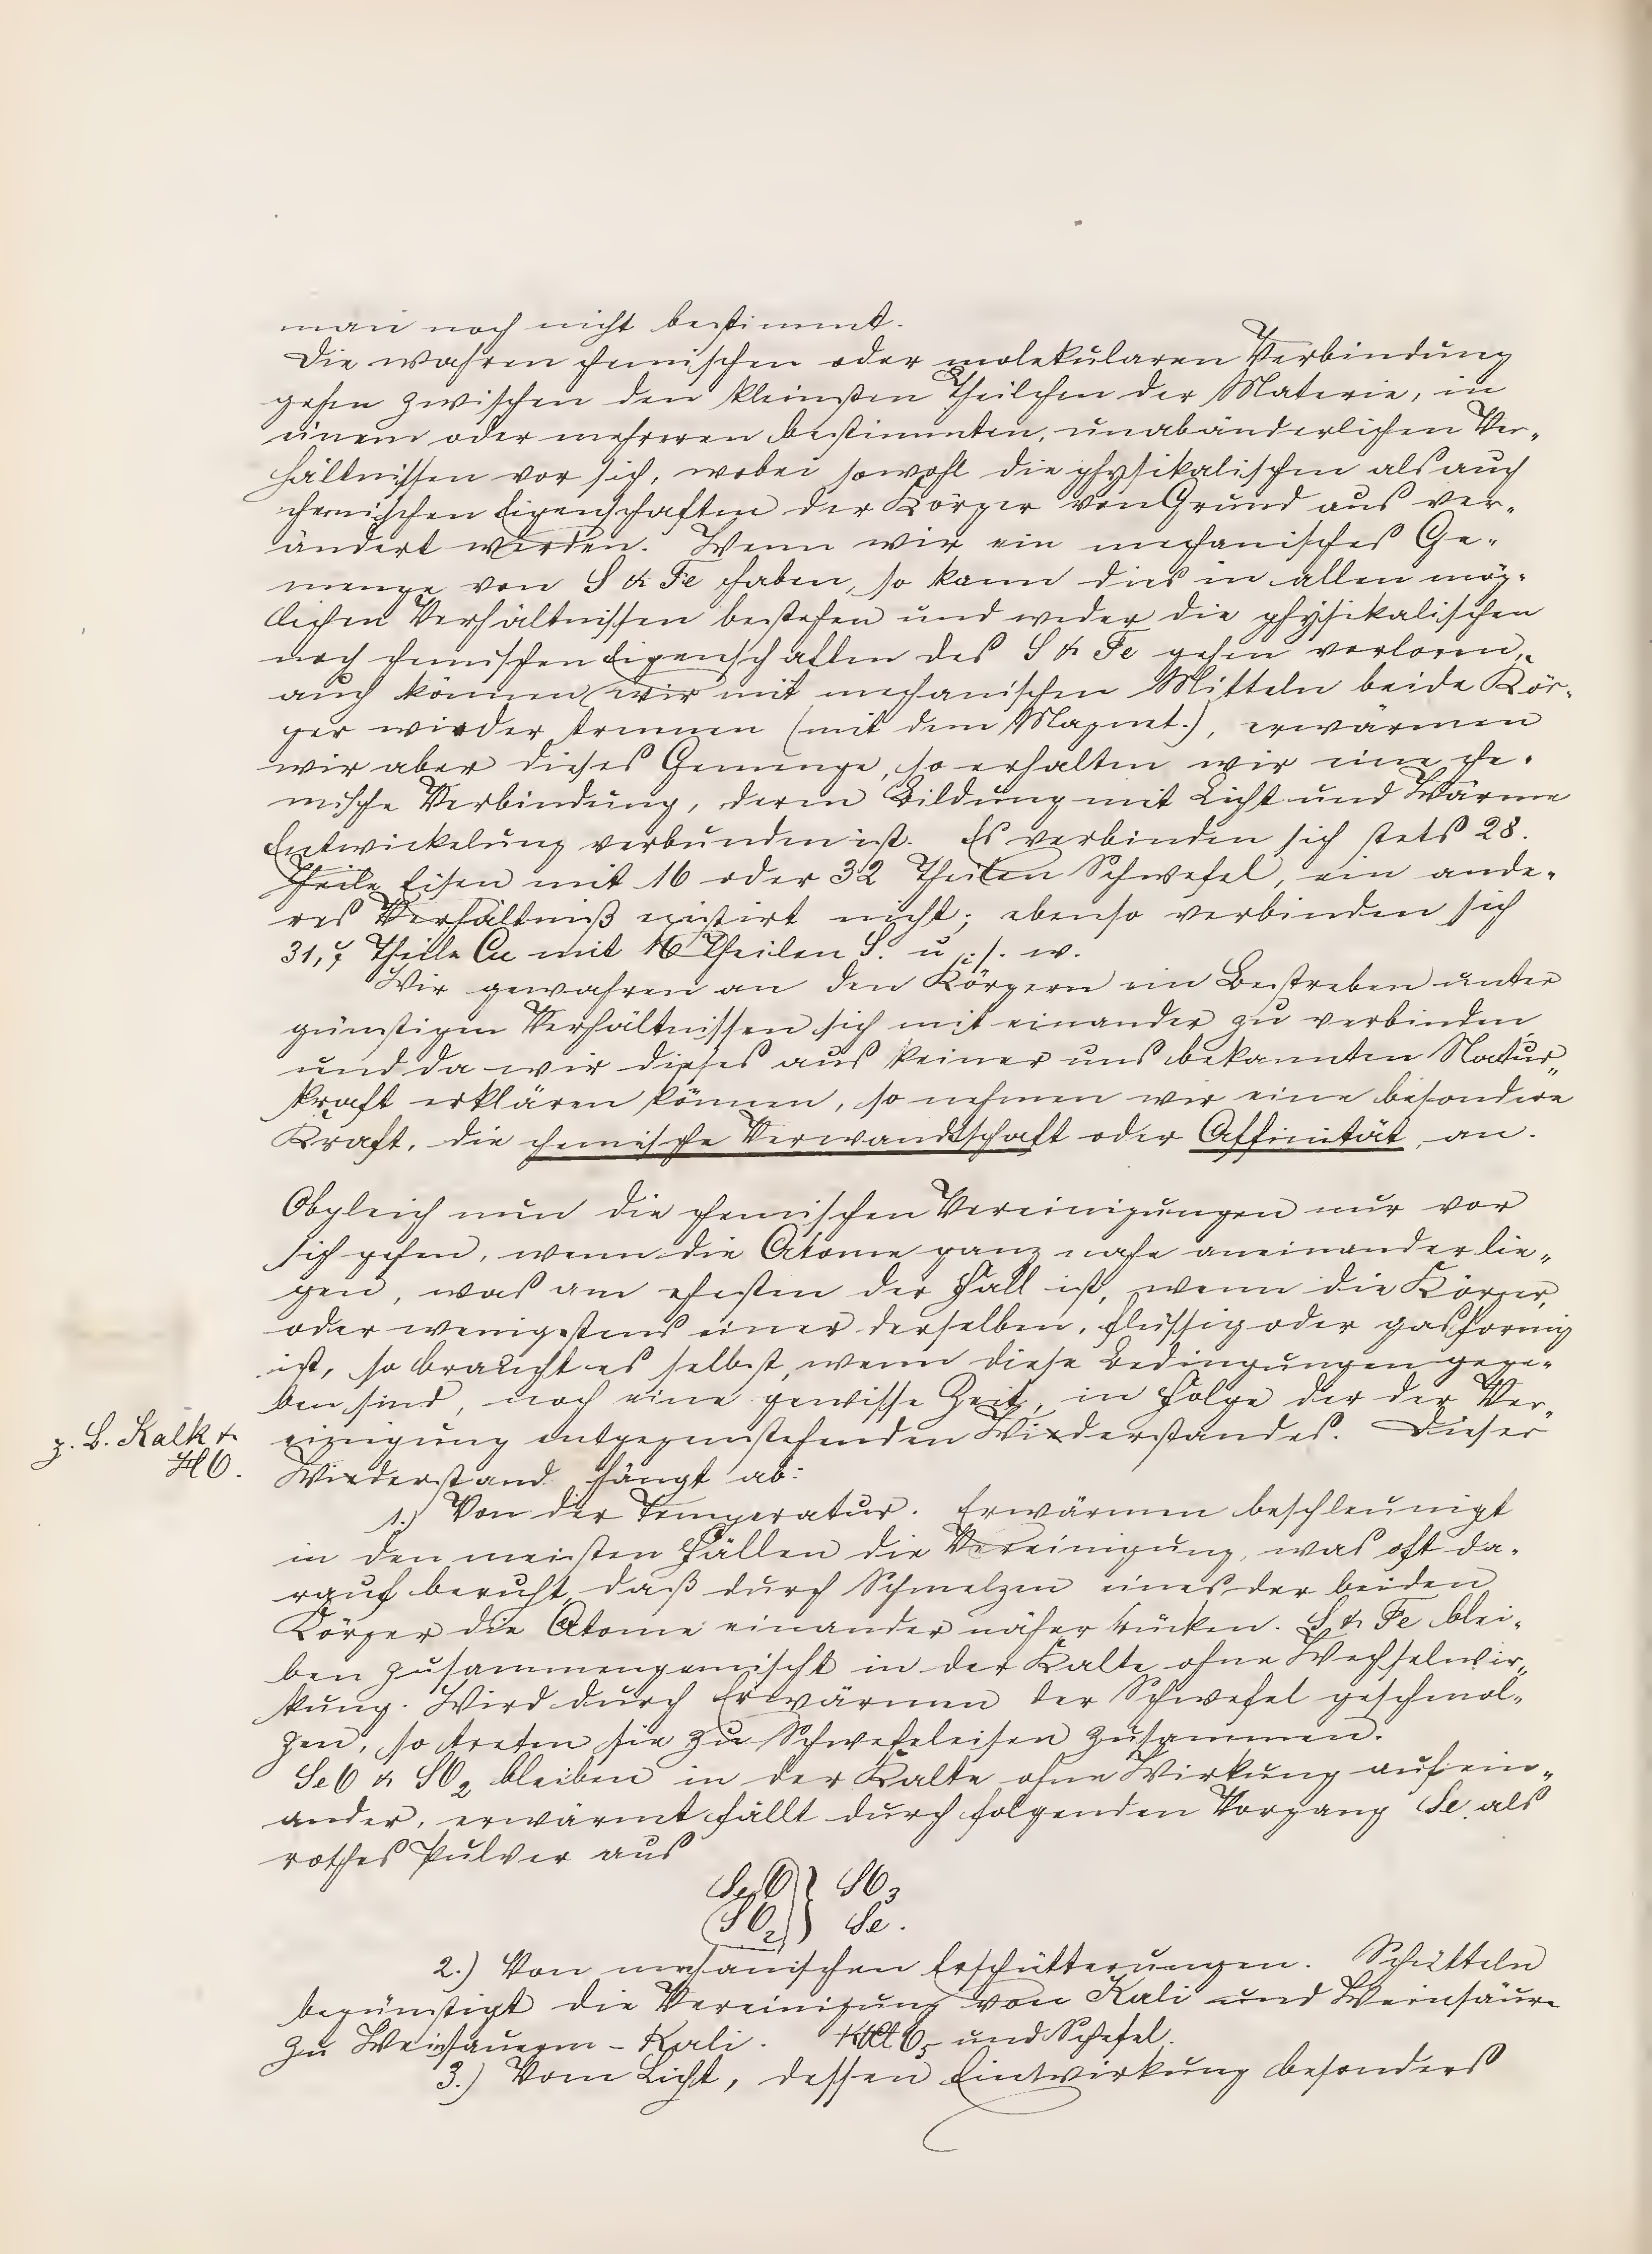 man noch nicht bestimmt.
Die wahren chemischen oder molekularen Verbindung
gehen zwischen den kleinsten Theilchen der Materie, in
einem oder mehreren bestimmten, unabänderlichen Ver-
hältnissen vor sich, wobei sowohl die physikalischen als auch
chemischen Eigenschaften der Körper von Grund aus ver-
ändert werden. Wenn wir ein mechanisches Ge-
menge von S & Fe haben, so kann dies in allen mög-
lichen Verhältnissen bestehen und weder die physikalischen
noch chemischen Eigenschaften des S & Fe gehen verloren,
auch können wir mit mechanischen Mitteln beide Kör-
per wieder trennen (mit dem Magnet.), erwärmen
wir aber dieses Gemenge, so erhalten wir eine che-
mische Verbindung, deren Bildung mit Licht und Wärme
Entwickelung verbunden ist. Es verbinden sich stets 28.
Theile Eisen mit 16 oder 32 Theilen Schwefel, ein ande-
res Verhältniß existirt nicht; ebenso verbinden sich
31,7 Theile Cu mit 16 Theilen S. u. s. w.
Wir gewahren an den Körpern ein Bestreben unter
günstigen Verhältnissen sich mit einander zu verbinden
und da wir dieses aus keiner uns bekannten Natur-
kraft erklären können, so nehmen wir eine besondere
Kraft, die chemische Verwandtschaft oder Affinität, an.
Obgleich nun die chemischen Vereinigungen nur vor
sich gehen, wenn die Atome ganz nahe aneinander lie-
gen, was am ehesten der Fall ist, wenn die Körper,
oder wenigstens einer derselben, flüssig oder gasförmig
ist, so braucht es selbst, wenn diese Bedingungen gege-
ben sind, noch eine gewisse Zeit, in Folge der der Ver-
einigung entgegenstehenden Widerstandes. Dieser
z. B. Kalk &
HO.
Widerstand hängt ab:
1.) Von der Temperatur. Erwärmen beschleunigt
in den meisten Fällen die Vereinigung, was oft da-
rauf beruht, daß durch Schmelzen eines der beiden
Körper die Atome einander näher rücken. S & Fe blei-
ben zusammengemischt in der Kälte ohne Wechselwir-
kung. Wird durch Erwärmen der Schwefel geschmol-
zen, so treten sie zu Schwefeleisen zusammen.
SeO & SO2 bleiben in der Kälte ohne Wirkung auf ein-
ander, erwärmt fällt durch folgenden Vorgang Se als
rothes Pulver aus
SeO } SO3
SO2 } Se.
2.) Von mechanischen Erschütterungen. Schütteln
begünstigt die Vereinigung von Kali und Weinsäure
zu Weinsauerm-Kali. KClO5 und Schefel.
3.) Vom Licht, dessen Eintwirkung besonders